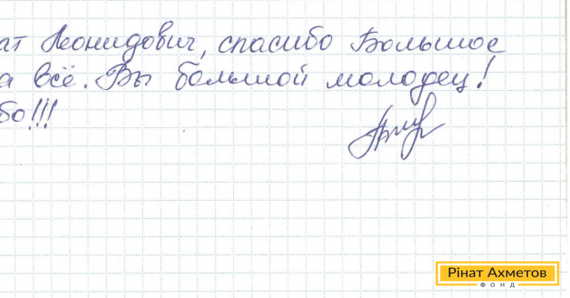 ат Леонидович, спасибо Большое
а всё. Вы большой молодец!
бо!!!
Рінат Ахметов
ФОНД